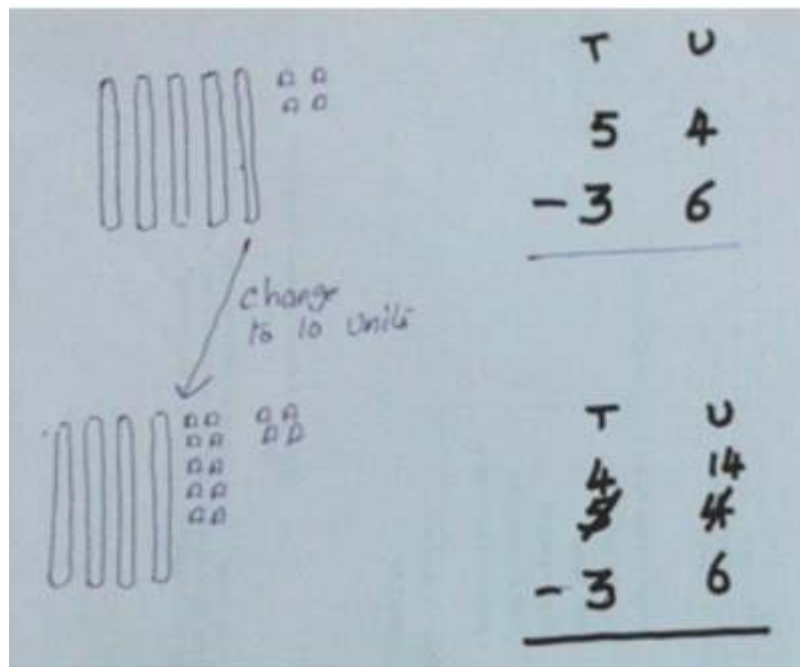 T U
5 4
- 3 6
change
to 10 units
T U
4 14
5 4
- 3 6